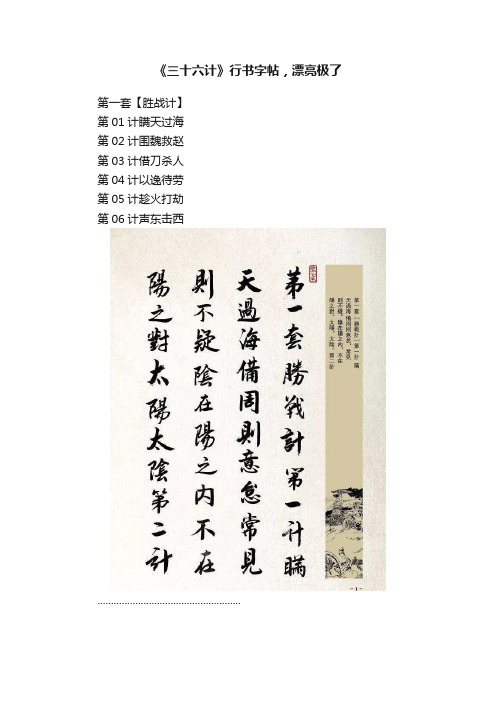 《三十六计》行书字帖，漂亮极了
第一套【胜战计】
第01计瞒天过海
第02计围魏救赵
第03计借刀杀人
第04计以逸待劳
第05计趁火打劫
第06计声东击西
第一套（勝戰計）第一計 瞞
天過海 備周則意怠，常見
則不疑。陰在陽之內，不在
陽之對。太陽，太陰。第二計
第一套勝戰計第一计瞞
天過海備周則意怠常見
則不疑陰在陽之内不在
陽之對太陽太陰第二計
-1-